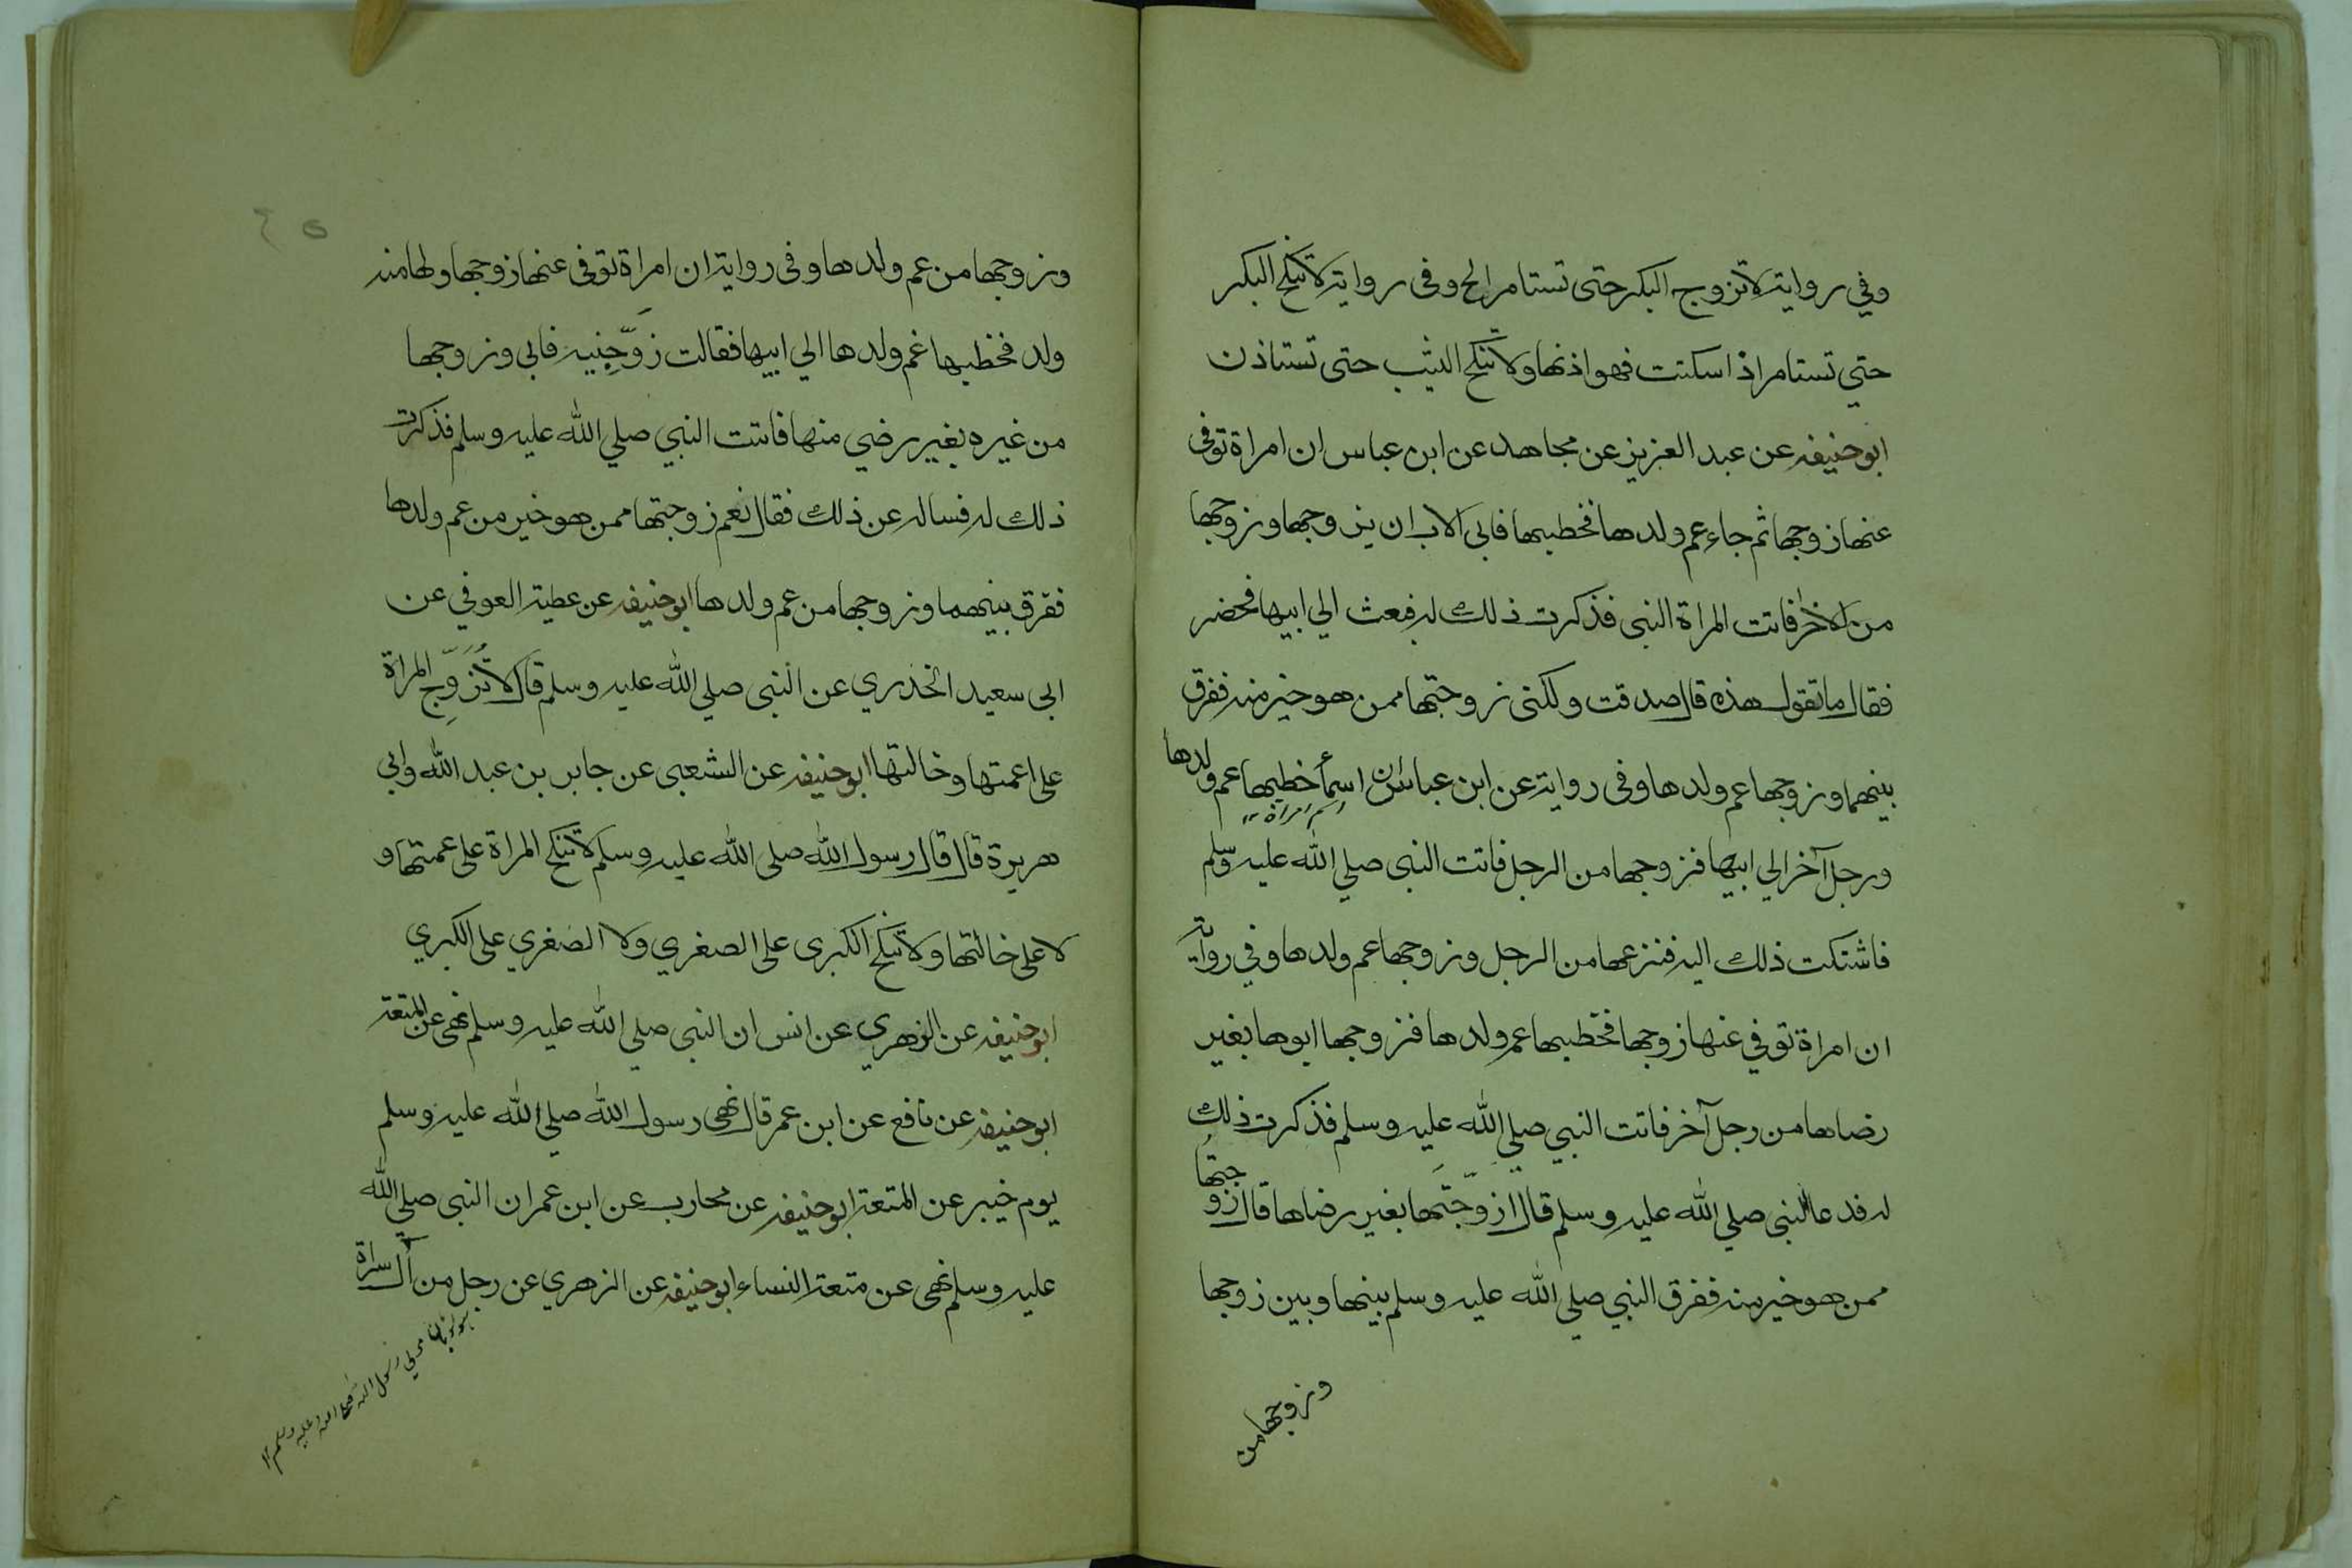 وفي رواية لا تزوج البكر حتى تستامر الخ وفى رواية لا تنكح البكر
حتي تستامر اذا سكتت فهو اذنها ولا تنكح الثيب حتى تستاذن
ابو حنيفه عن عبد العزيز عن مجاهد عن ابن عباس ان امراة توفى
عنها زوجها ثم جاء عم ولدها فخطبها فابى الاب ان يزوجها وزوجها
من الاخر فاتت المراة النبى فذكرت ذلك له فبعث الي ابيها فحضر
فقال ما تقول هذه قال صدقت ولكنى زوجتها ممن هو خير منه ففرق
بينهما وزوجها عم ولدها وفى رواية عن ابن عباس ان اسمأ خطبها عم ولدها
اسم امراة ١٢
ورجل آخر الي ابيها فزوجها من الرجل فاتت النبى صلي الله عليه وسلم
فاشتكت ذلك اليه فنزعها من الرجل وزوجها عم ولدها وفي رواية
ان امراة توفي عنها زوجها فخطبها عم ولدها فزوجها ابوها بغير
رضاها من رجل آخر فاتت النبي صلي الله عليه وسلم فذكرت ذلك
له فدعا النبى صلي الله عليه وسلم قال ازوّجتَها بغير رضاها قال زوجتها
ممن هو خير منه ففرق النبي صلي الله عليه وسلم بينها وبين زوجها
وزوجها من
٢٥
وزوجها من عم ولدها وفى رواية ان امراة توفى عنها زوجها ولها منه
ولد فخطبها عم ولدها الي ابيها فقالت زَوِّجنِيه فابى وزوجها
من غيره بغير رضي منها فاتت النبي صلي الله عليه وسلم فذكرت
ذلك له فساله عن ذلك فقال نعم زوجتها ممن هو خير من عم ولدها
ففرق بينهما وزوجها من عم ولدها ابو حنيفه عن عطية العوفي عن
ابى سعيد الخدري عن النبى صلي الله عليه وسلم قال لا تُزَوِّج المراة
على عمتها وخالتها ابو حنيفه عن الشعبى عن جابر بن عبد الله وابي
هريرة قال قال رسول الله صلى الله عليه وسلم لا تنكح المراة على عمتها و
لا على خالتها ولا تنكح الكبرى على الصغري ولا الصغري على الكبري
ابو حنيفه عن الزهري عن انس ان النبى صلي الله عليه وسلم نهى عن المتعة
ابو حنيفه عن نافع عن ابن عمر قال نهى رسول الله صلي الله عليه وسلم
يوم خيبر عن المتعة ابو حنيفه عن محارب عن ابن عمر ان النبى صلي الله
عليه وسلم نهى عن متعة النساء ابو حنيفه عن الزهري عن رجل من آل سبرة
مولي رسول الله صلى الله عليه وسلم ١٢